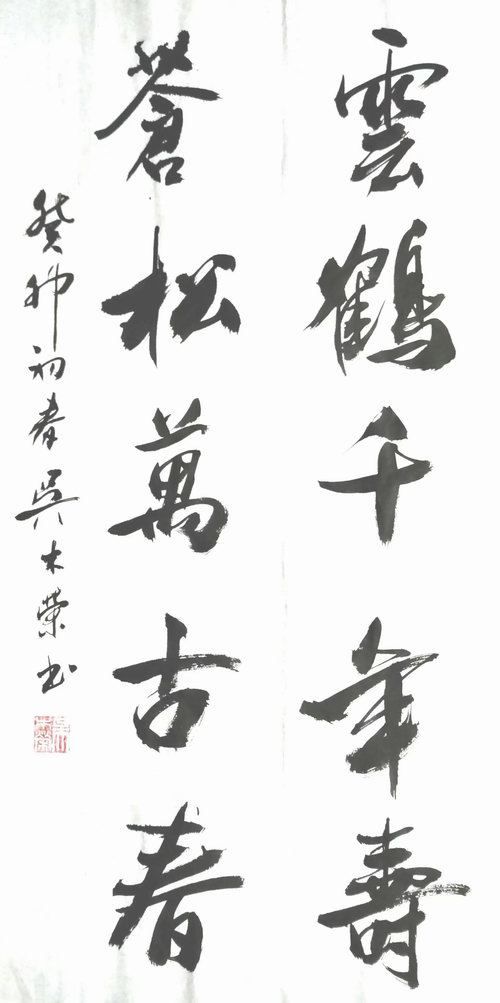 雲鶴千年壽
蒼松萬古春
癸卯初春吴木榮书